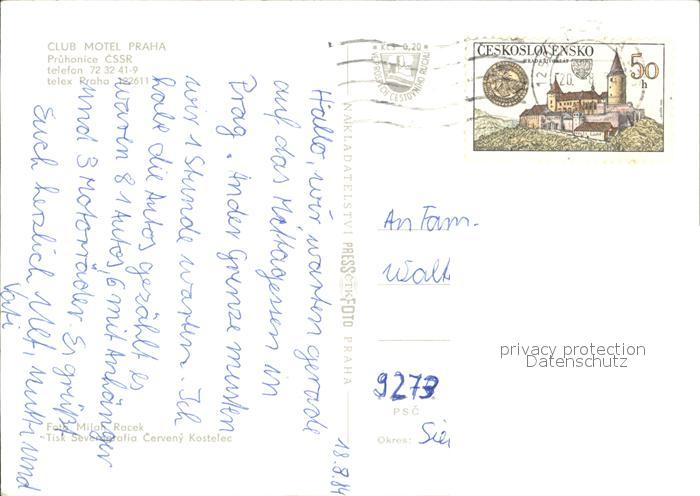 CLUB MOTEL PRAHA
Průhonice ČSSR
telefon 72 32 41-9
telex Praha 122611
Hallo, wir warten gerade
auf das Mittagessen in
Prag. An der Grenze mussten
wir 1 Stunde warten. Ich
habe die Autos gezählt es
waren 81 Autos, 6 mit Anhänger
und 3 Motorräder. Es grüßt
Euch herzlich Ulf, Mutti und
Vati
18.8.84
Foto Milan Racek
Tisk Severografia Červený Kostelec
NAKLADATELSTVÍ PRESSFOTO PRAHA
KČS 0,20
ČESKOSLOVENSKO
50 h
An Fam.
Walt
9273
PSČ
Okres:
privacy protection
Datenschutz